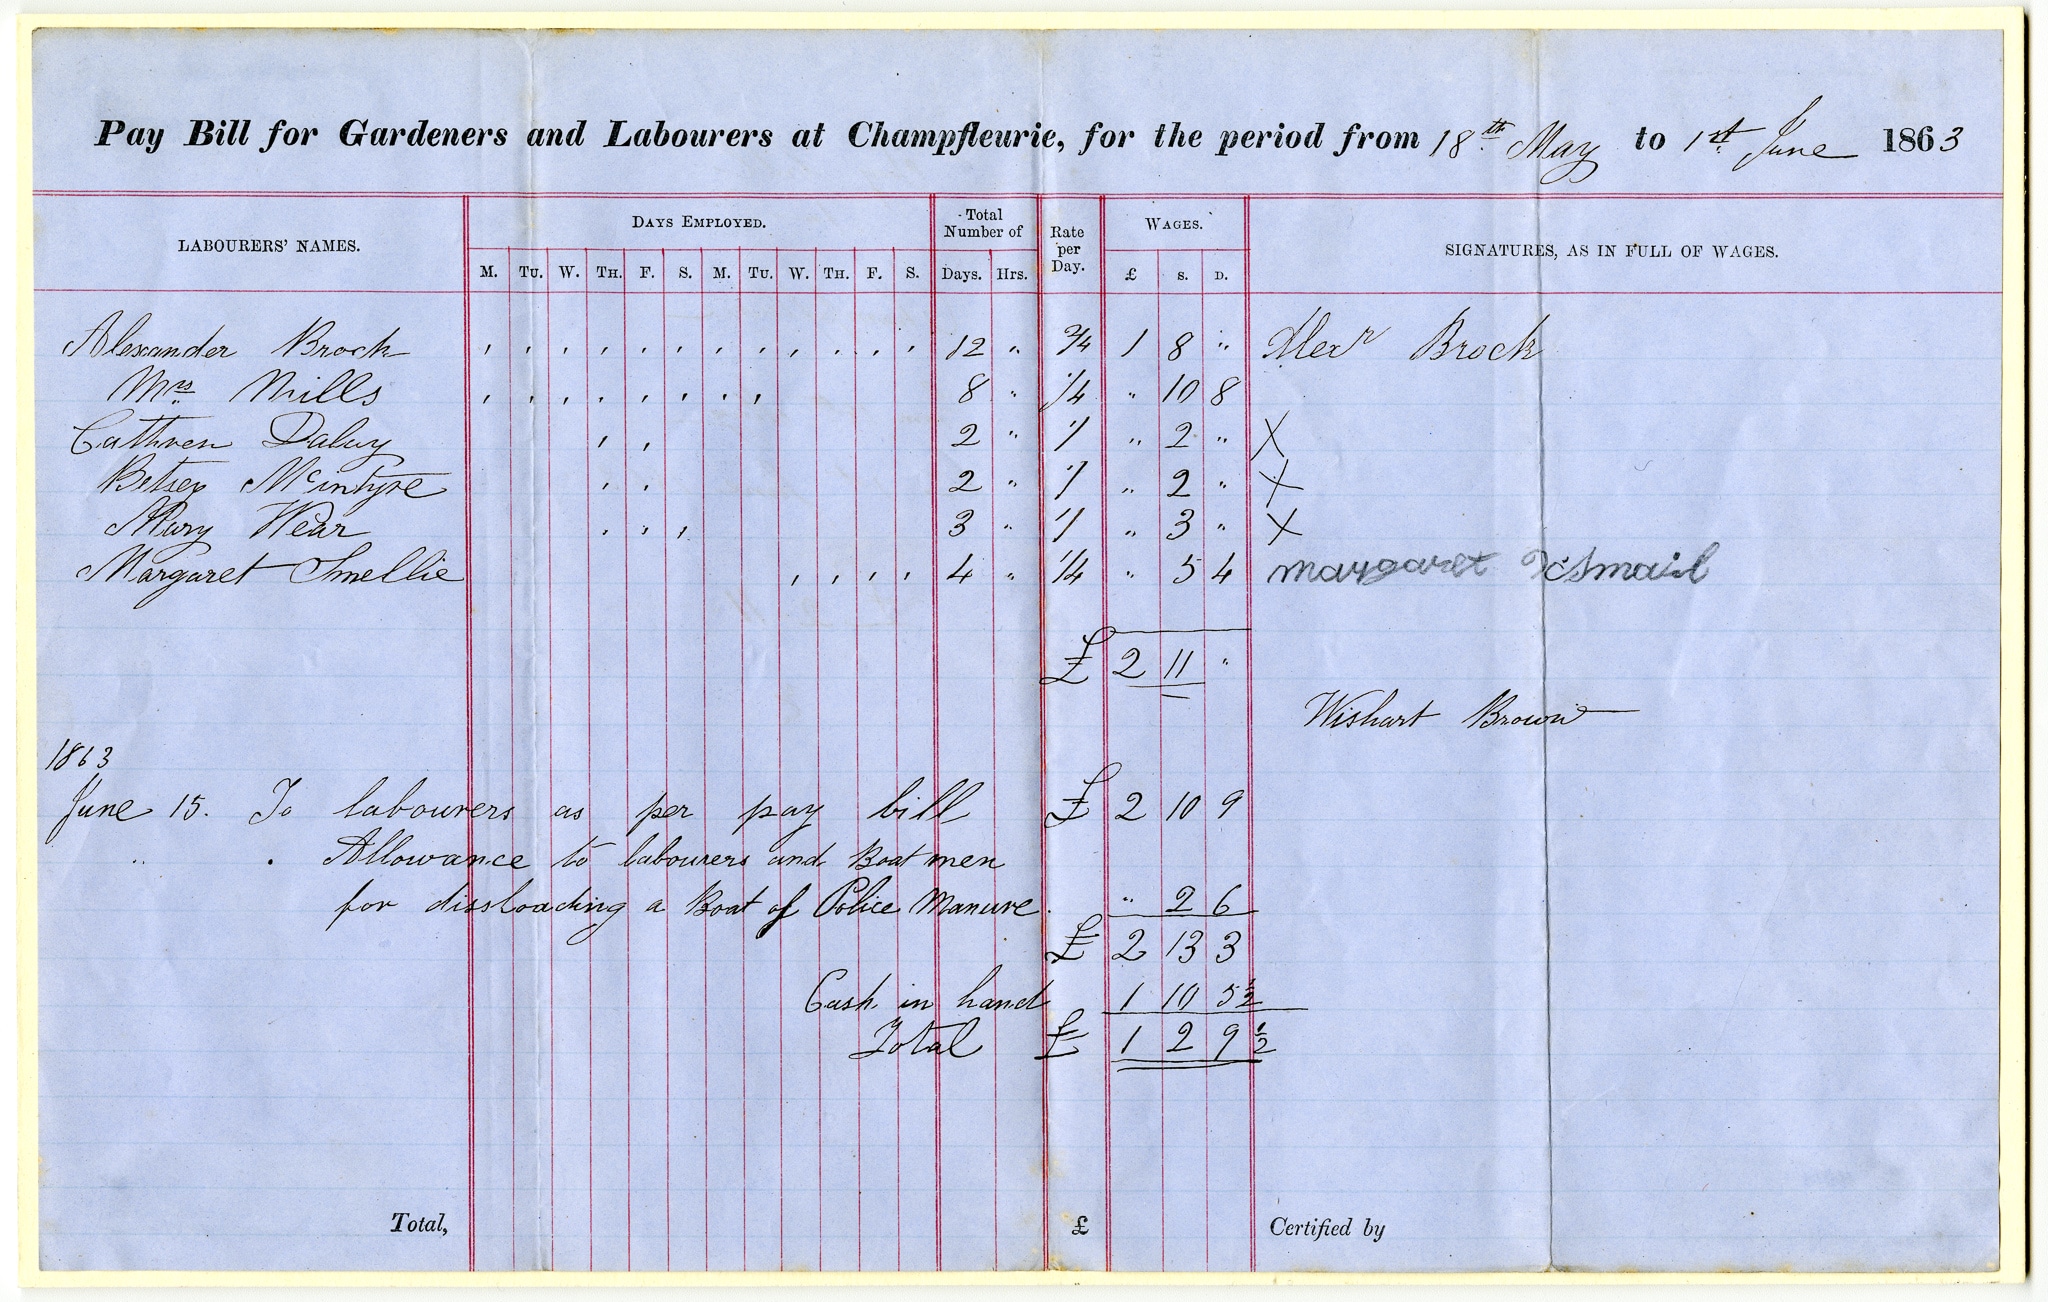 Pay Bill for Gardeners and Labourers at Champfleurie, for the period from 18th May to 1st June 1863
LABOURERS' NAMES. DAYS EMPLOYED. Total Number of Rate per Day. WAGES. SIGNATURES, AS IN FULL OF WAGES.
M. TU. W. TH. F. S. M. TU. W. TH. F. S. Days. Hrs. £ S. D.
Alexander Brock ' ' ' ' ' ' ' ' ' ' ' ' 12 " 2/4 1 8 " Alexr Brock
Mrs Mills ' ' ' ' ' ' ' ' 8 " 1/4 " 10 8
Cathren Daluy ' ' 2 " 1/ " 2 " X
Betsey McIntyre ' ' 2 " 1/ " 2 " X
Mary Wear ' ' ' 3 " 1/ " 3 " X
Margaret Smellie ' ' ' ' 4 " 1/4 " 5 4 Margaret Smail
£ 2 11 "
Wishart Brown
1863
June 15. To labourers as per pay bill £ 2 10 9
" . Allowance to labourers and Boatmen
for dissloading a Boat of Police Manure. " 2 6
£ 2 13 3
Cash in hand 1 10 5½
Total £ 1 2 9½
Total, £ Certified by